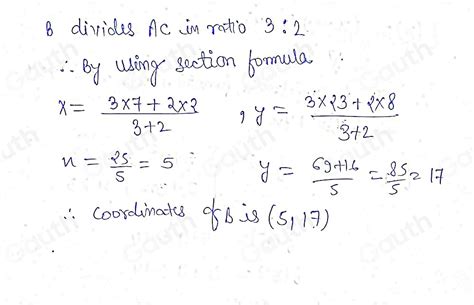 B divides AC in ratio 3:2
∴ By using section formula
x = (3×7 + 2×2)/(3+2) , y = (3×23 + 2×8)/(3+2)
x = 25/5 = 5 y = (69+16)/5 = 85/5 = 17
∴ Coordinates of B is (5, 17)